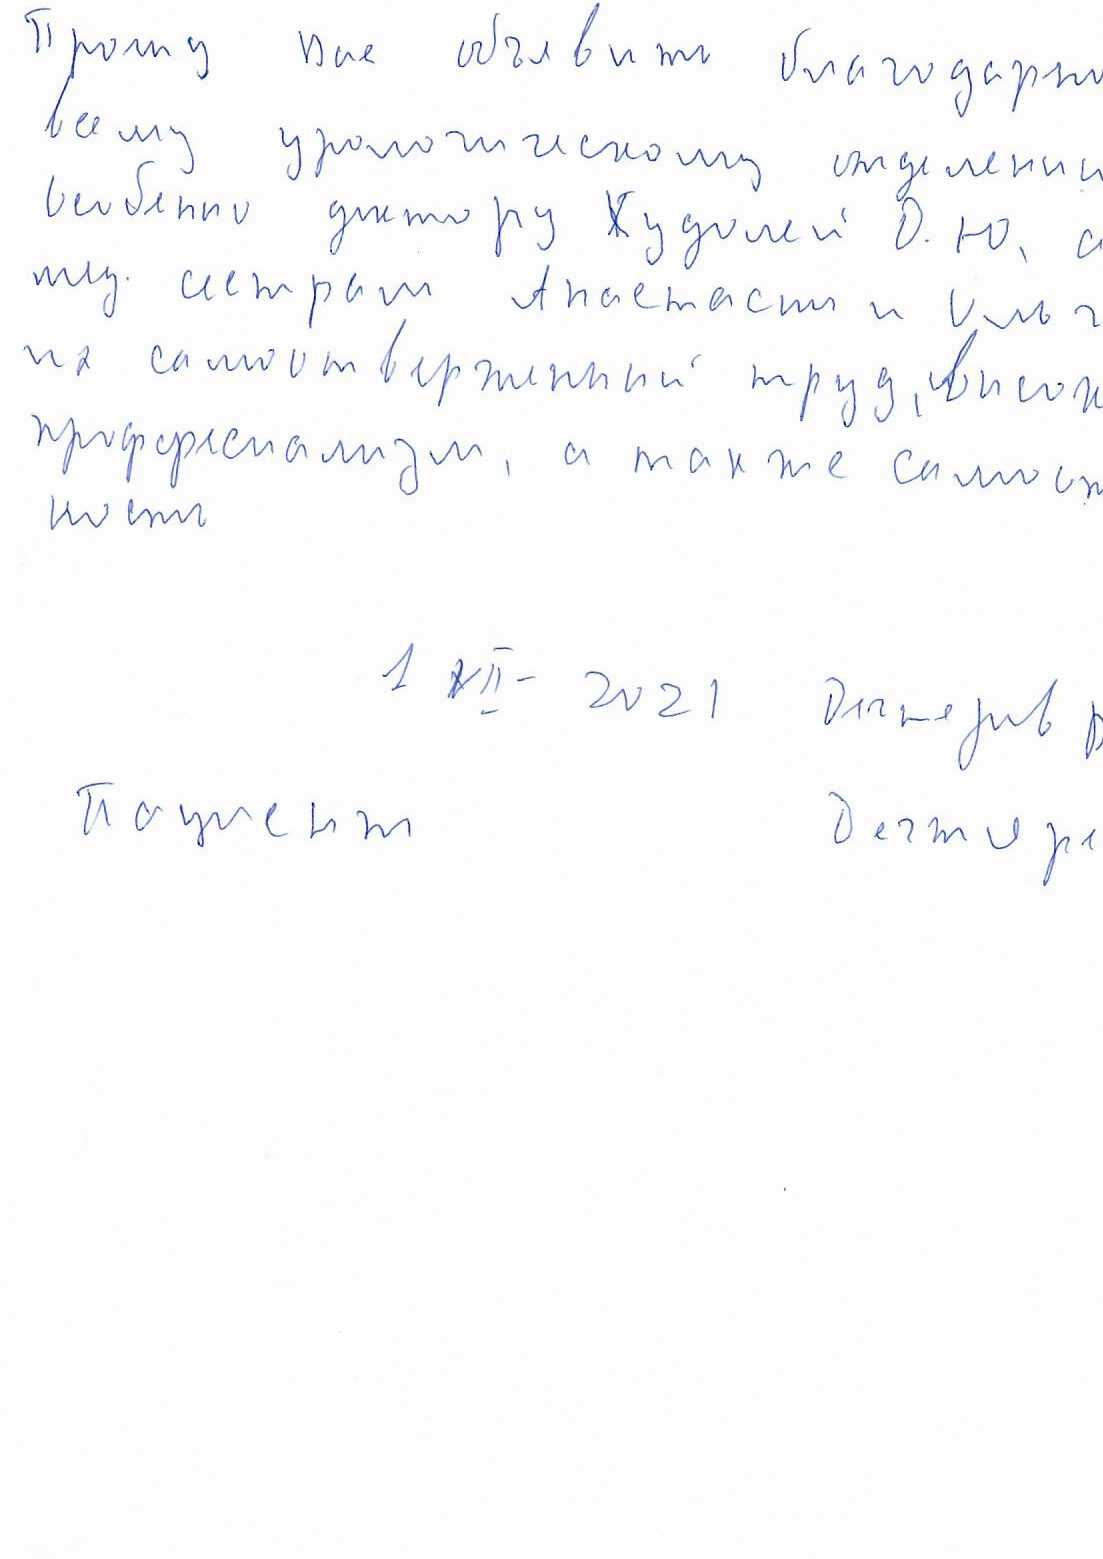 Прошу Вас объявить благодарно
всему урологическому отделени
особенно доктору Худолей О.Ю, а
мед. сестрам Анастасии и Ольг
их самоотверженный труд, высок
професиализм, а так же самоот
ность
1 VII- 2021
Пациент